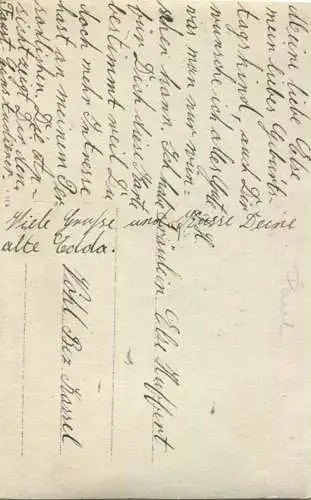 Meine liebe Else
mein liebes Geburts-
tagskind, auch Dir
wünsche ich alles Gute
was man nur wün-
schen kann. Ich habe
für Dich diese Karte
bestimmt weil Du
doch mehr Intresse
hast an meinem Per-
sönlichen. Die An-
sicht zeigt Dir den
Viele Grüße und Küsse Deine
alte Edda.
Fräulein Else Huffert
Wohl. Bez Kassel
Paul